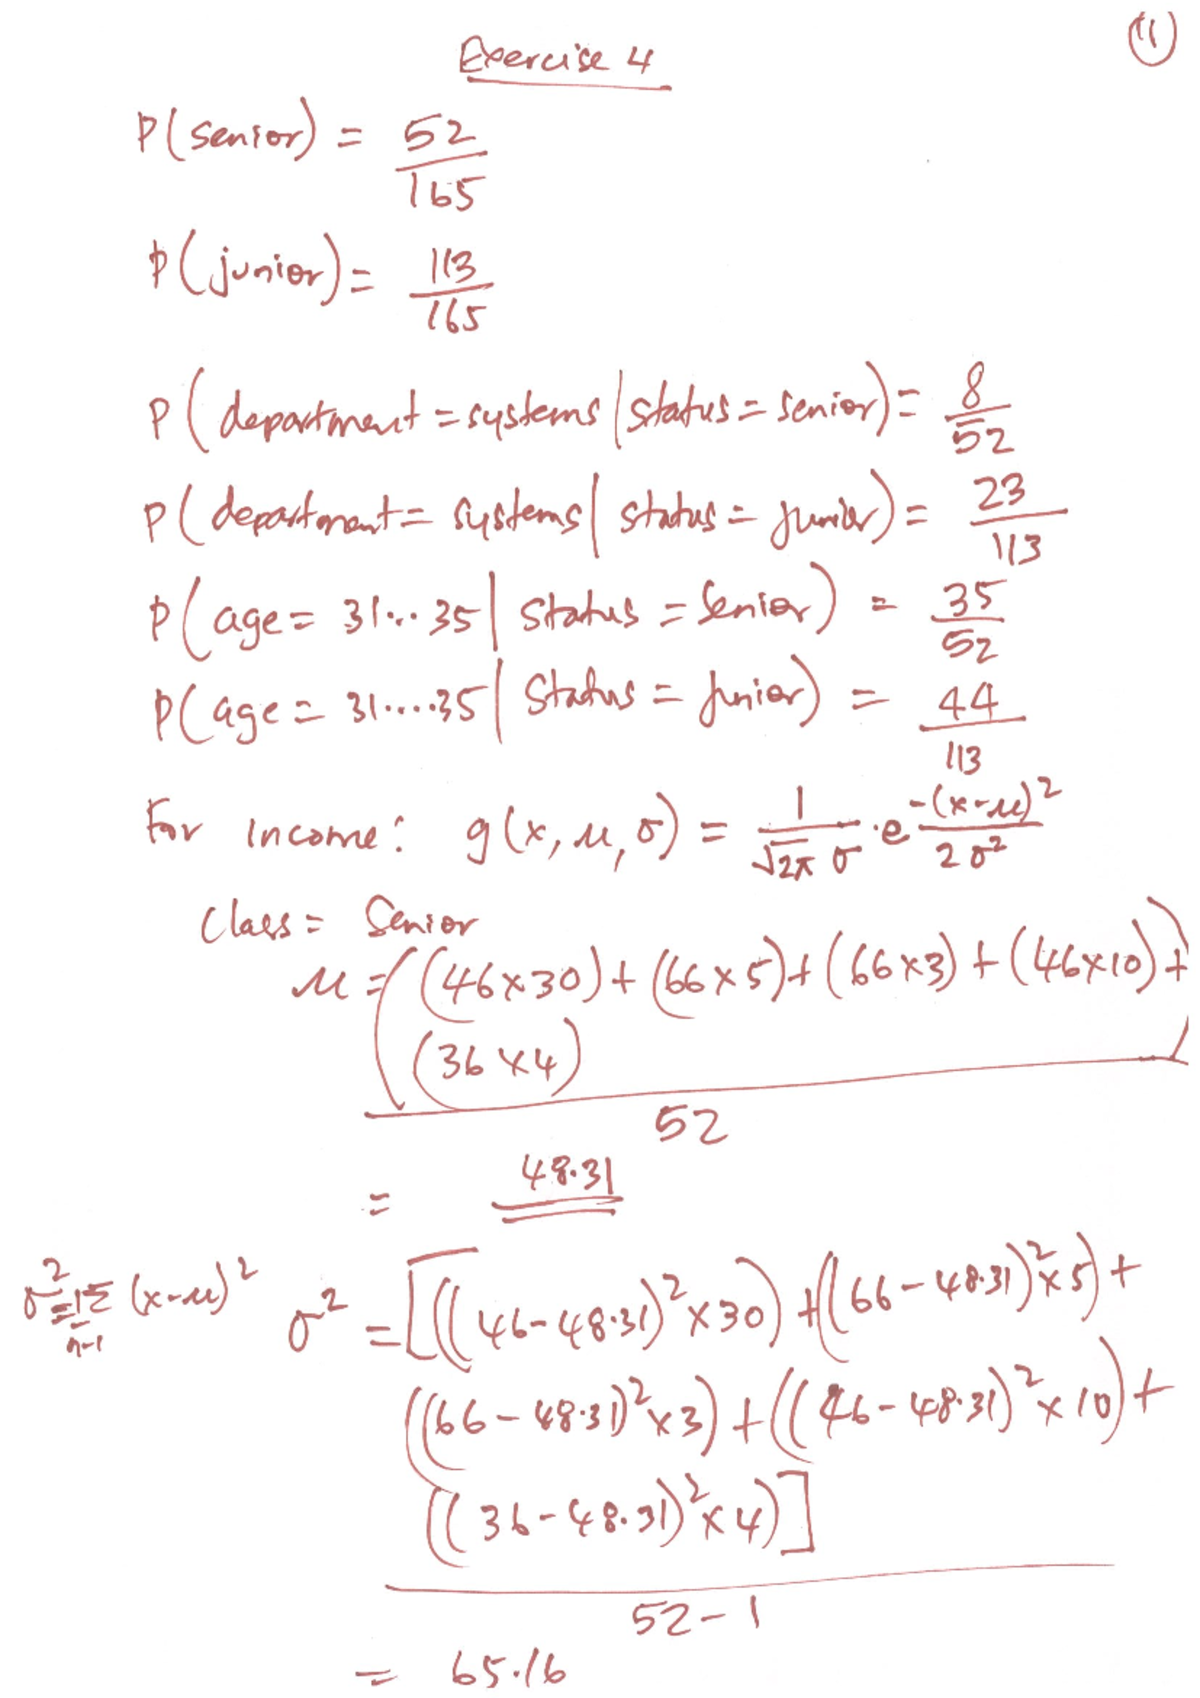 11
Exercise 4
P(senior) = 52/165
P(junior) = 113/165
P(department = systems | status = senior) = 8/52
P(department = systems | status = junior) = 23/113
P(age = 31...35 | status = Senior) = 35/52
P(age = 31.....35 | Status = junior) = 44/113
For income: g(x, μ, σ) = 1/(√2π σ) · e^(-(x-μ)²/2σ²)
Class = Senior
μ = ((46×30) + (66×5) + (66×3) + (46×10) +
(36×4))
52
= 48.31
σ² = 1/(n-1) Σ (x-μ)²
σ² = [((46-48.31)²×30) + ((66-48.31)²×5) +
((66-48.31)²×3) + ((46-48.31)²×10) +
((36-48.31)²×4)]
52-1
= 65.16